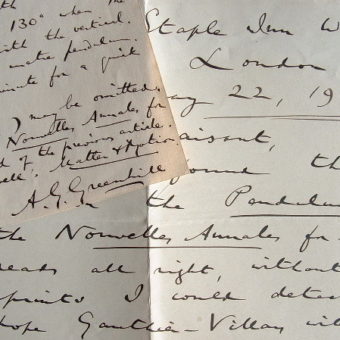 130° when the
with the vertical.
matie pendulum.
minute for a quick
) may be omitted
Nouvelles Annales for
d of the previous article.
ell". Matter & Motion
A. G. Greenhill
Staple Inn W
London
ay 22, 19
aisant,
found th
the Pendulu
the Nouvelles Annales for
reads all right, without
sprints I could detec
hope Gauthier-Villars wil